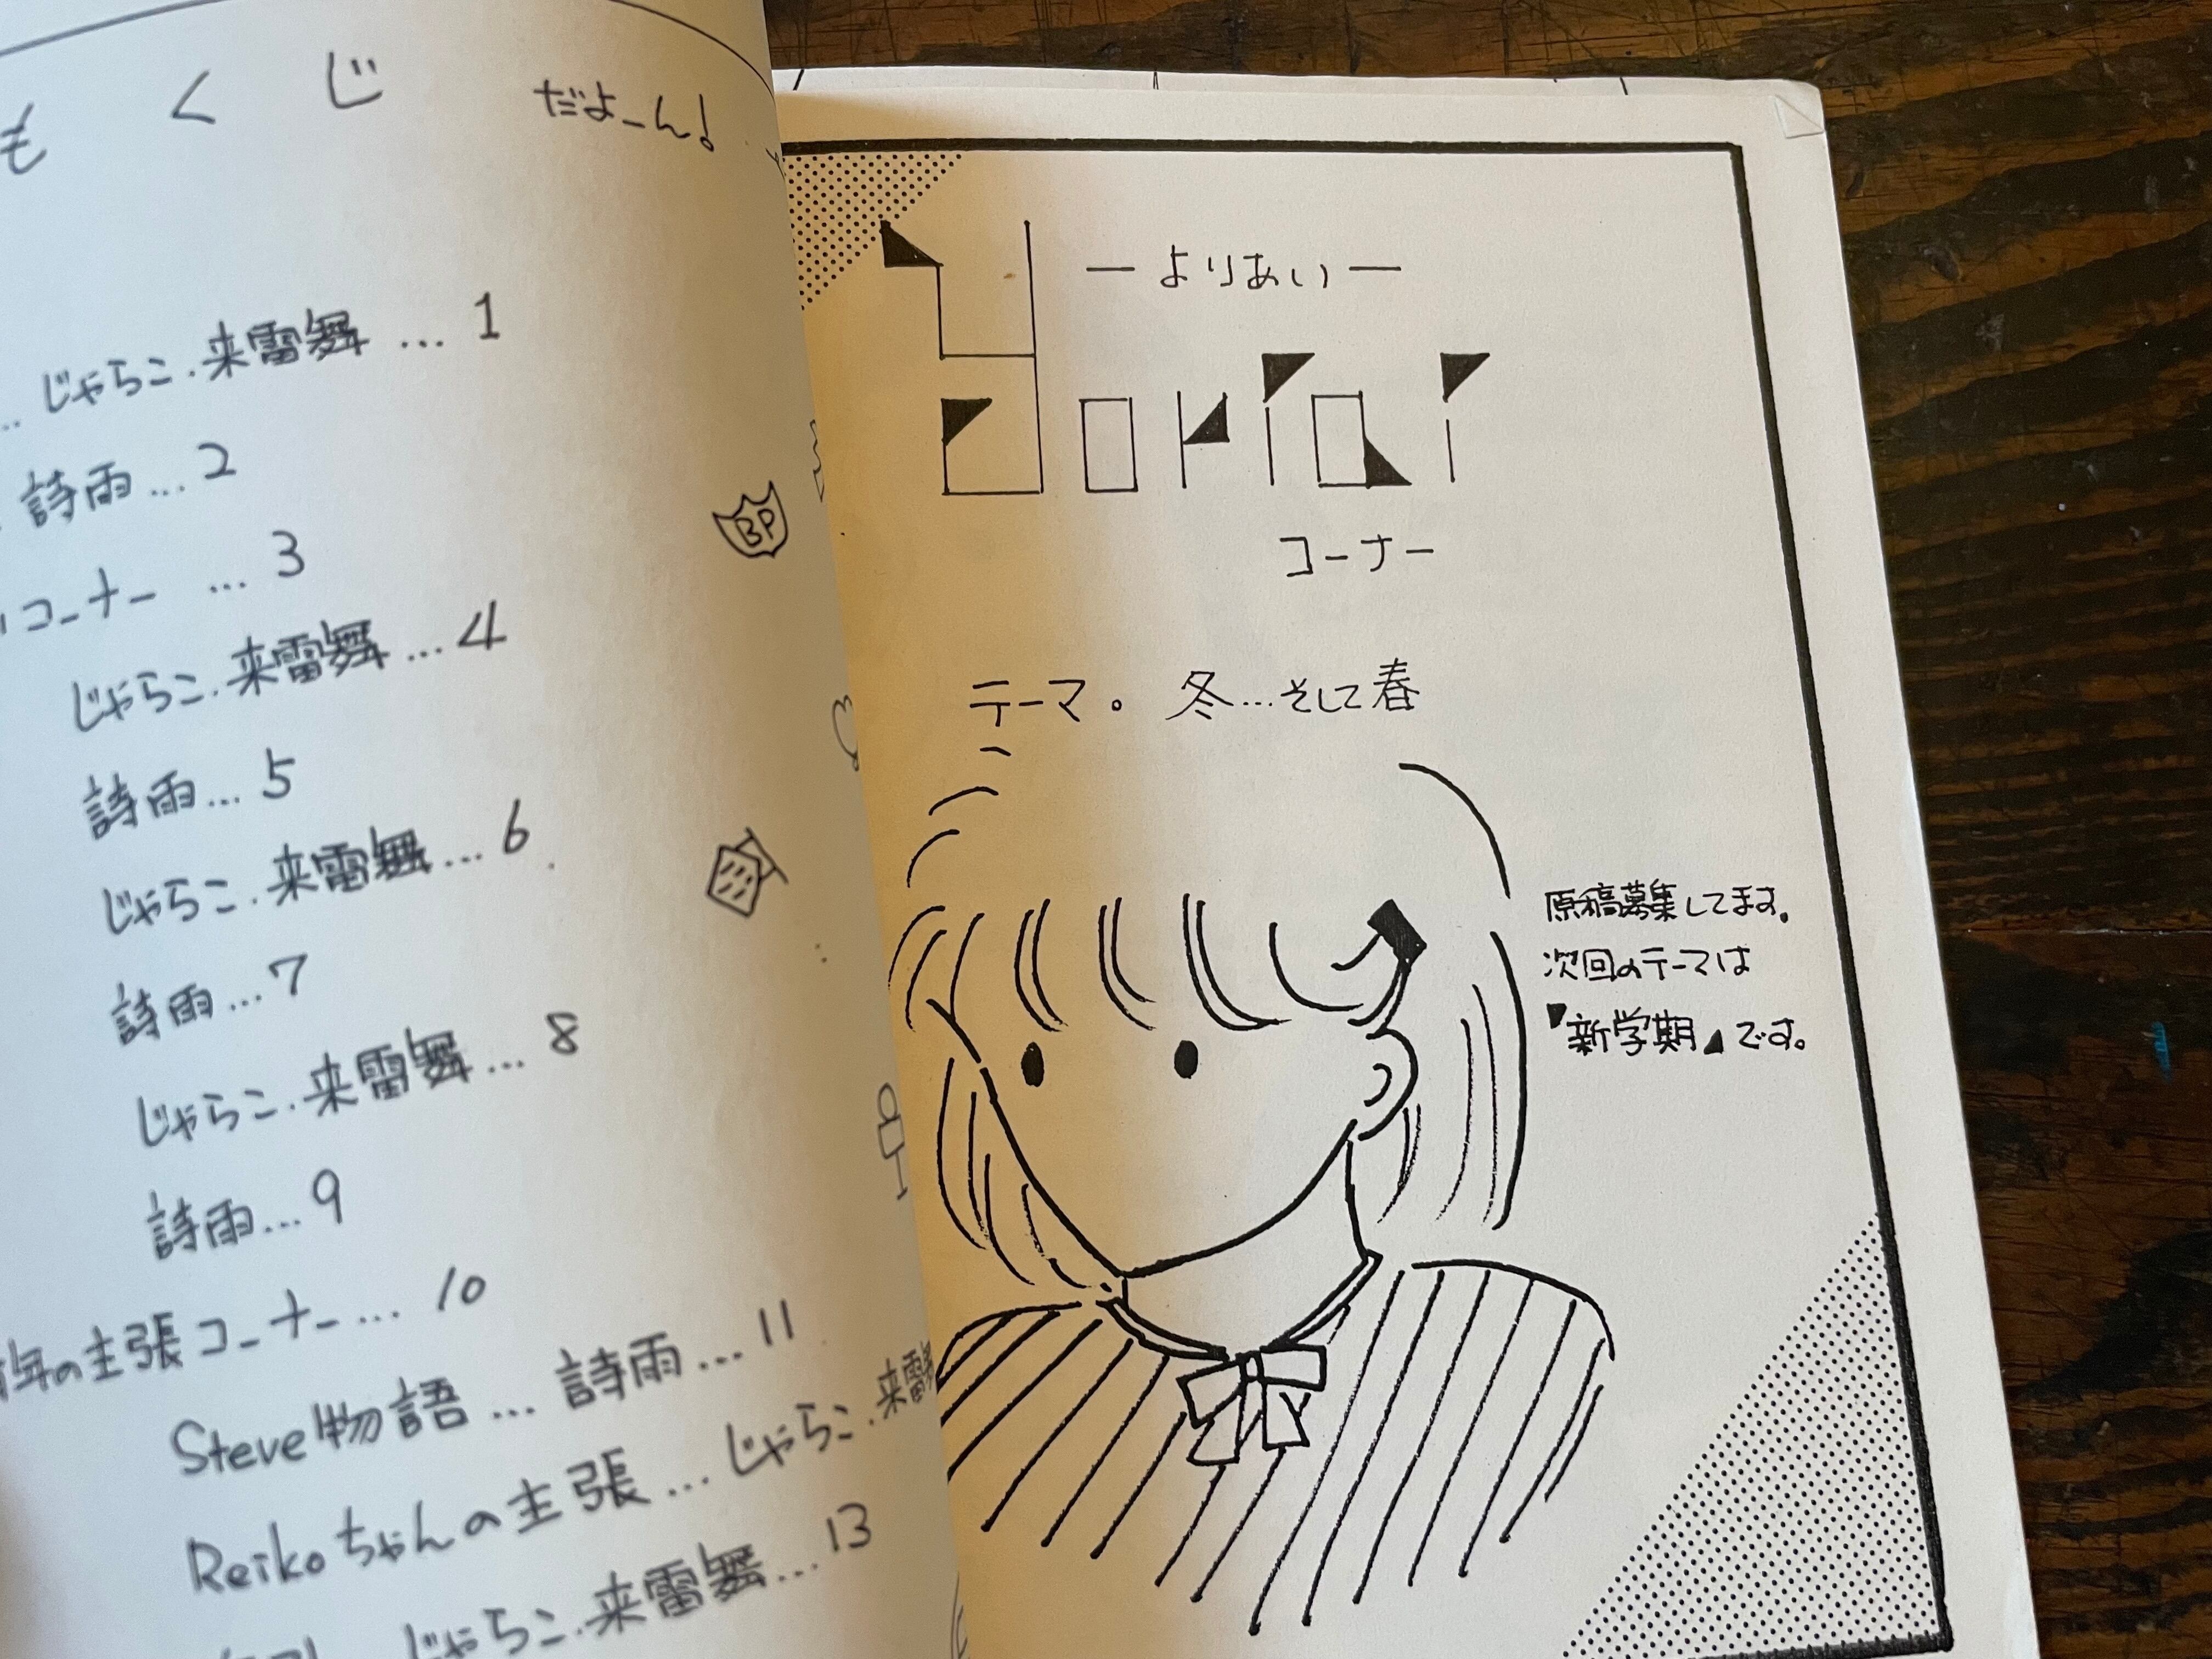 もくじ だよーん!
じゃらこ.来雷舞 … 1
詩雨 … 2
コーナー … 3
じゃらこ.来雷舞 … 4
詩雨 … 5
じゃらこ.来雷舞 … 6
詩雨 … 7
じゃらこ.来雷舞 … 8
詩雨 … 9
年の主張コーナー … 10
Steve物語 … 詩雨 … 11
Reikoちゃんの主張 … じゃらこ.来雷舞
じゃらこ.来雷舞 … 13
BP
—よりあい—
Yoriai
コーナー
テーマ。冬…そして春
原稿募集してます。
次回のテーマは
『新学期』です。